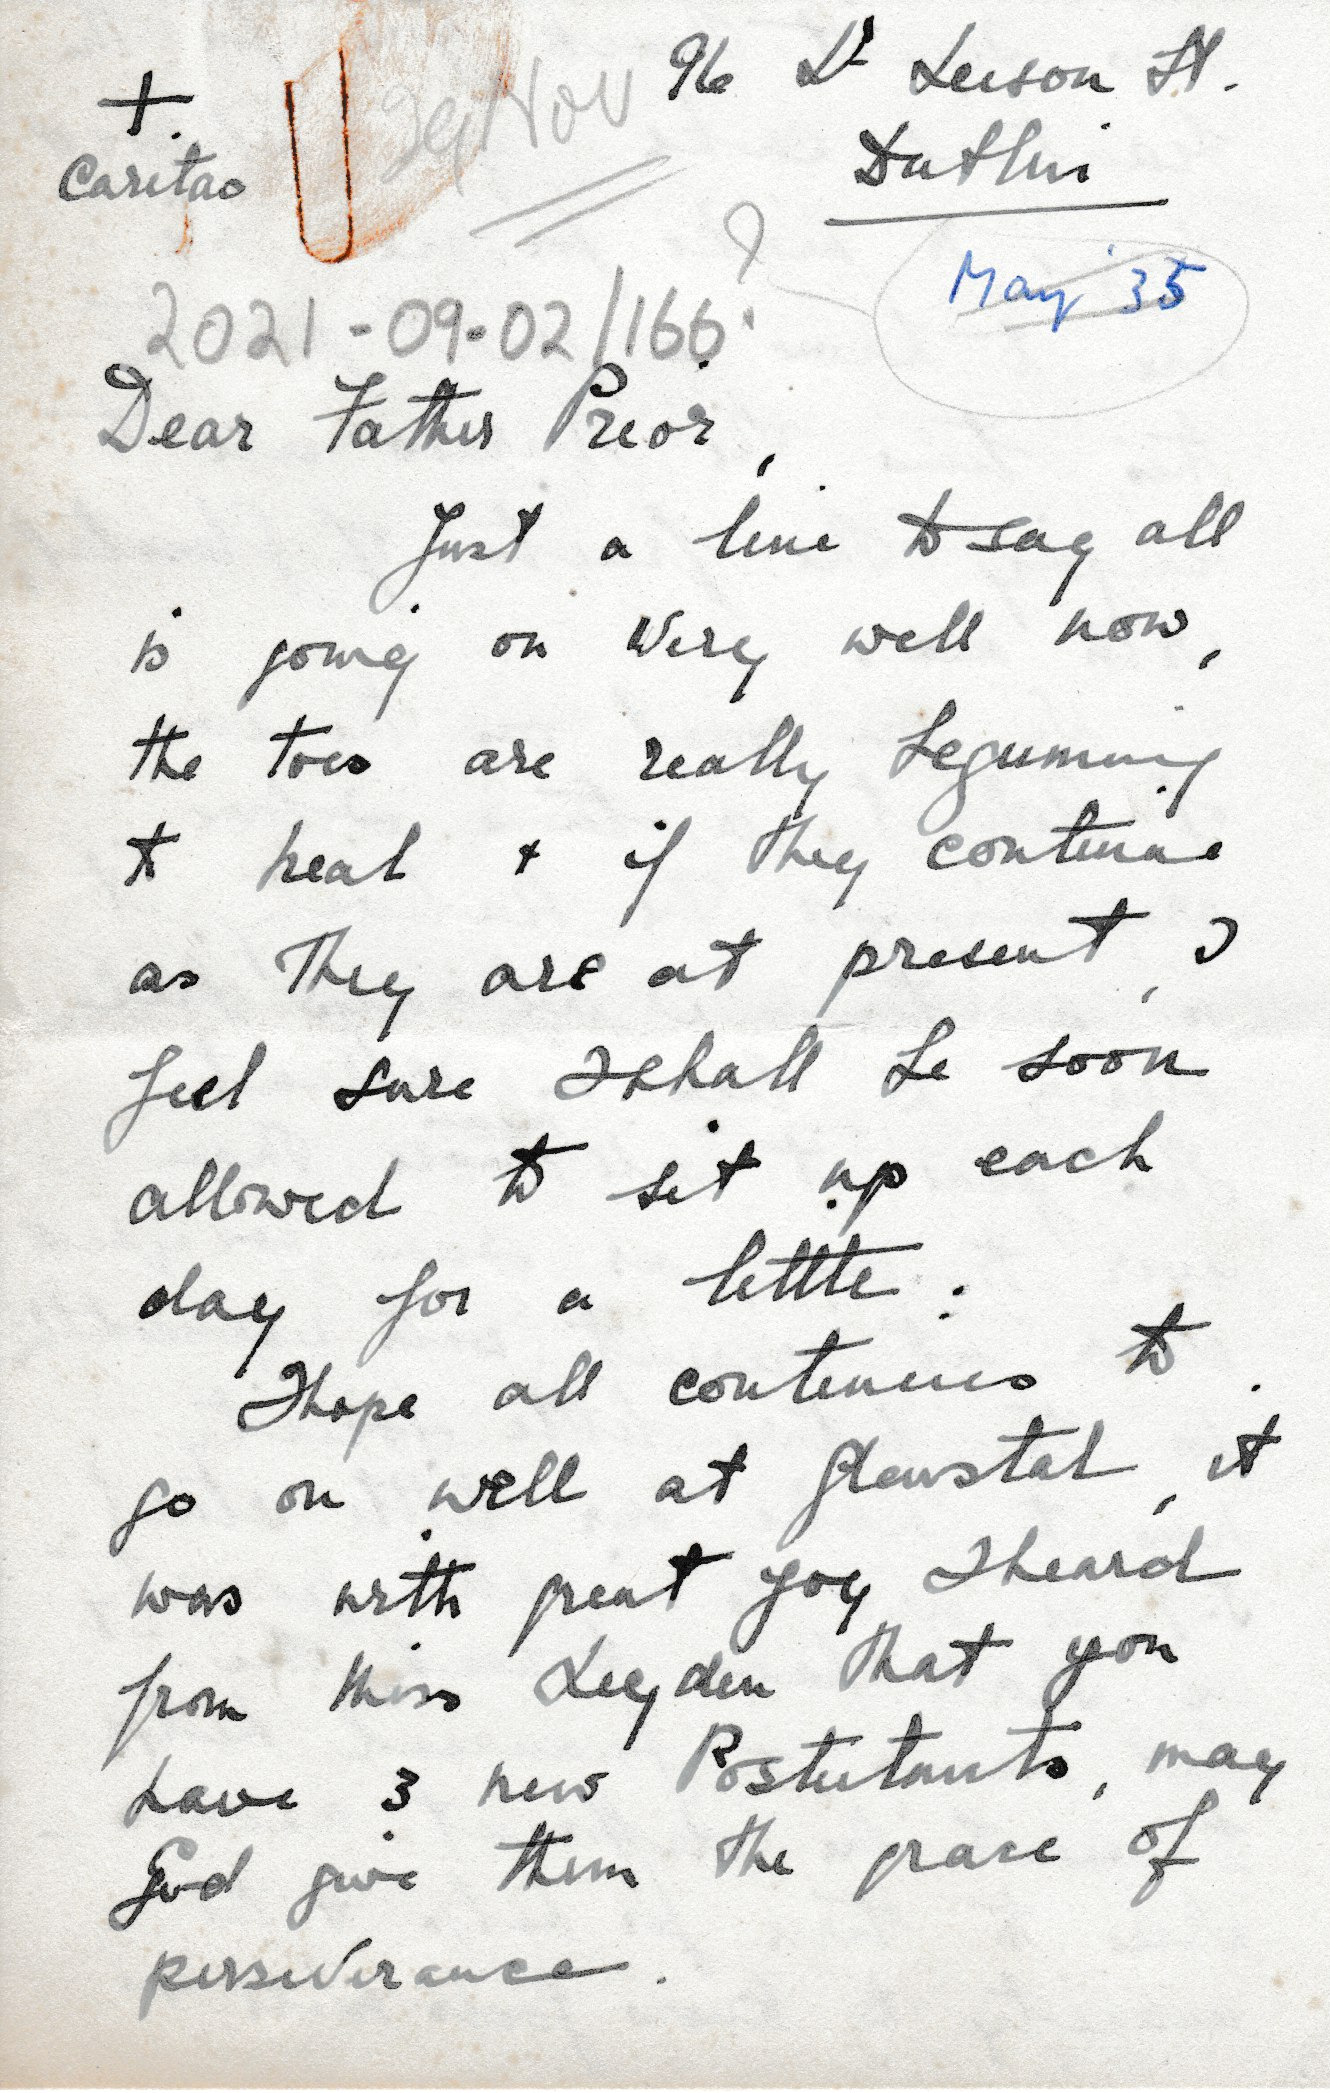 96 Lr Leeson St.
+
Caritas
Dublin
Nov
?
May '35
2021-09-02/166
Dear Father Prior,
Just a line to say all
is going on very well now,
the toes are really beginning
to heal + if they continue
as they are at present, I
feel sure I shall be soon
allowed to sit up each
day for a little.
I hope all continues to
go on well at Glenstal, it
was with great joy I heard
from Miss Leyden that you
have 3 new Postulants, may
God give them the grace of
perseverance.